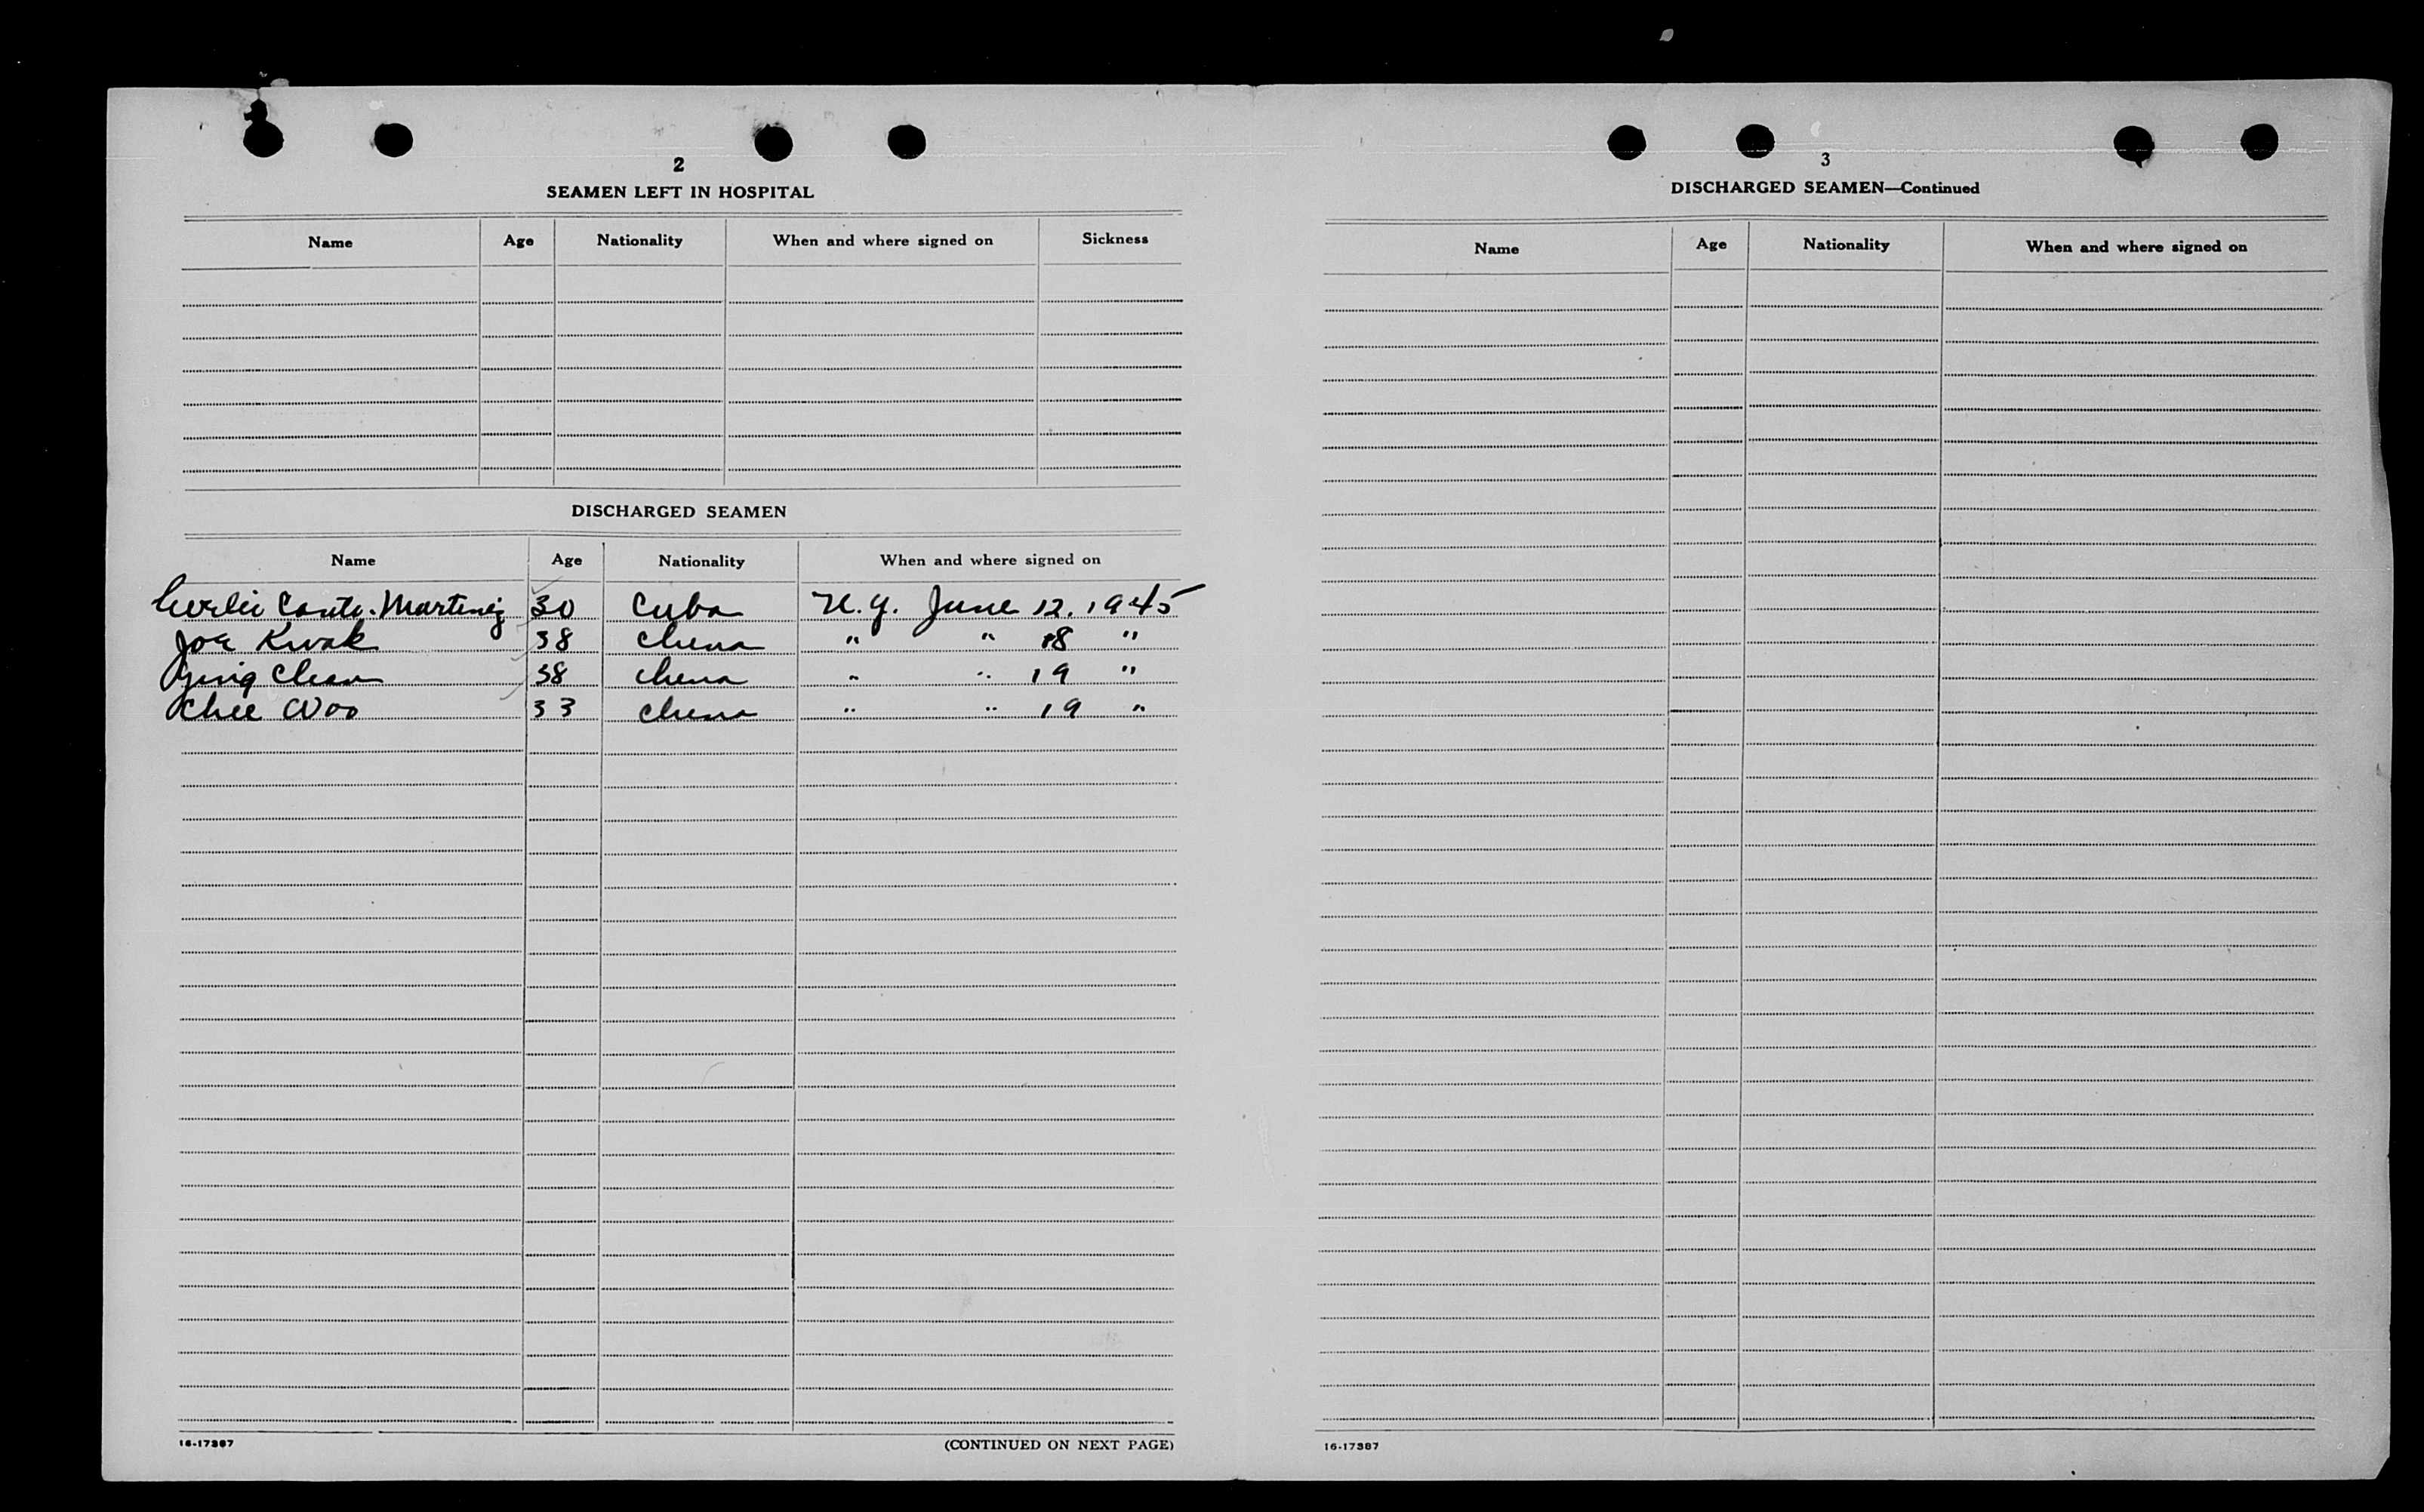 2
SEAMEN LEFT IN HOSPITAL
Name Age Nationality When and where signed on Sickness
DISCHARGED SEAMEN
Name Age Nationality When and where signed on
Martinez 30 Cuba N.Y. June 12, 1945
Joe Kwak 38 China " " 18 "
Ging Chan 38 China " " 19 "
Chee Woo 33 China " " 19 "
16-17387
(CONTINUED ON NEXT PAGE)
3
DISCHARGED SEAMEN—Continued
Name Age Nationality When and where signed on
16-17387